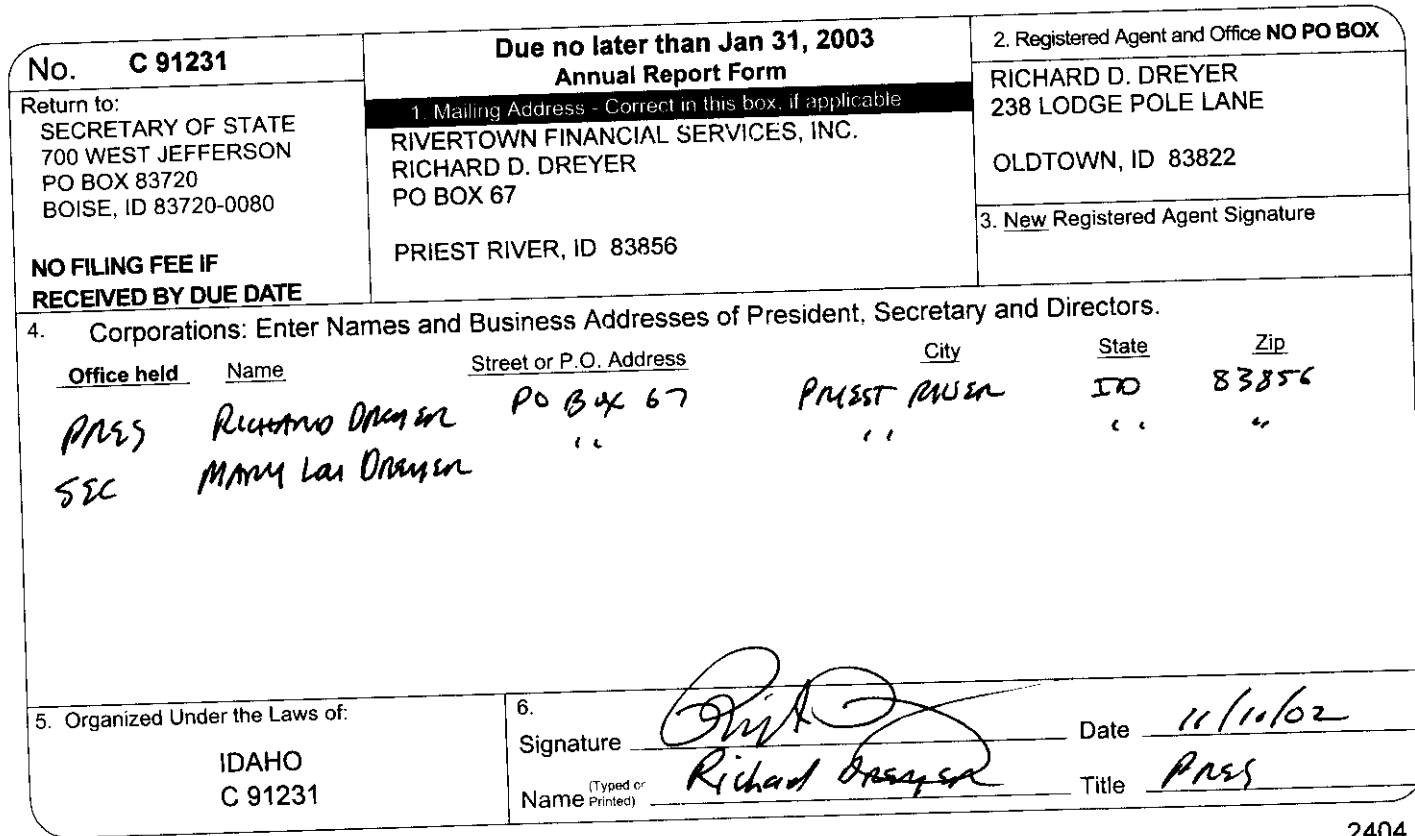 No. C 91231
Return to:
SECRETARY OF STATE
700 WEST JEFFERSON
PO BOX 83720
BOISE, ID 83720-0080
NO FILING FEE IF
RECEIVED BY DUE DATE
Due no later than Jan 31, 2003
Annual Report Form
1. Mailing Address - Correct in this box, if applicable
RIVERTOWN FINANCIAL SERVICES, INC.
RICHARD D. DREYER
PO BOX 67
PRIEST RIVER, ID 83856
2. Registered Agent and Office NO PO BOX
RICHARD D. DREYER
238 LODGE POLE LANE
OLDTOWN, ID 83822
3. New Registered Agent Signature
4. Corporations: Enter Names and Business Addresses of President, Secretary and Directors.
Office held Name Street or P.O. Address City State Zip
PRES RICHARD DREYER PO BOX 67 PRIEST RIVER ID 83856
SEC MARY LOU DREYER " " " "
5. Organized Under the Laws of:
IDAHO
C 91231
6.
Signature Date 11/10/02
Name (Typed or Printed) Richard DREYER Title PRES
2404